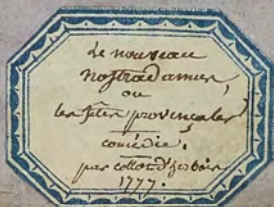 Le nouveau
nostradamus,
ou
les fêtes provençales
comédie.
par collot d'herbois
1777.